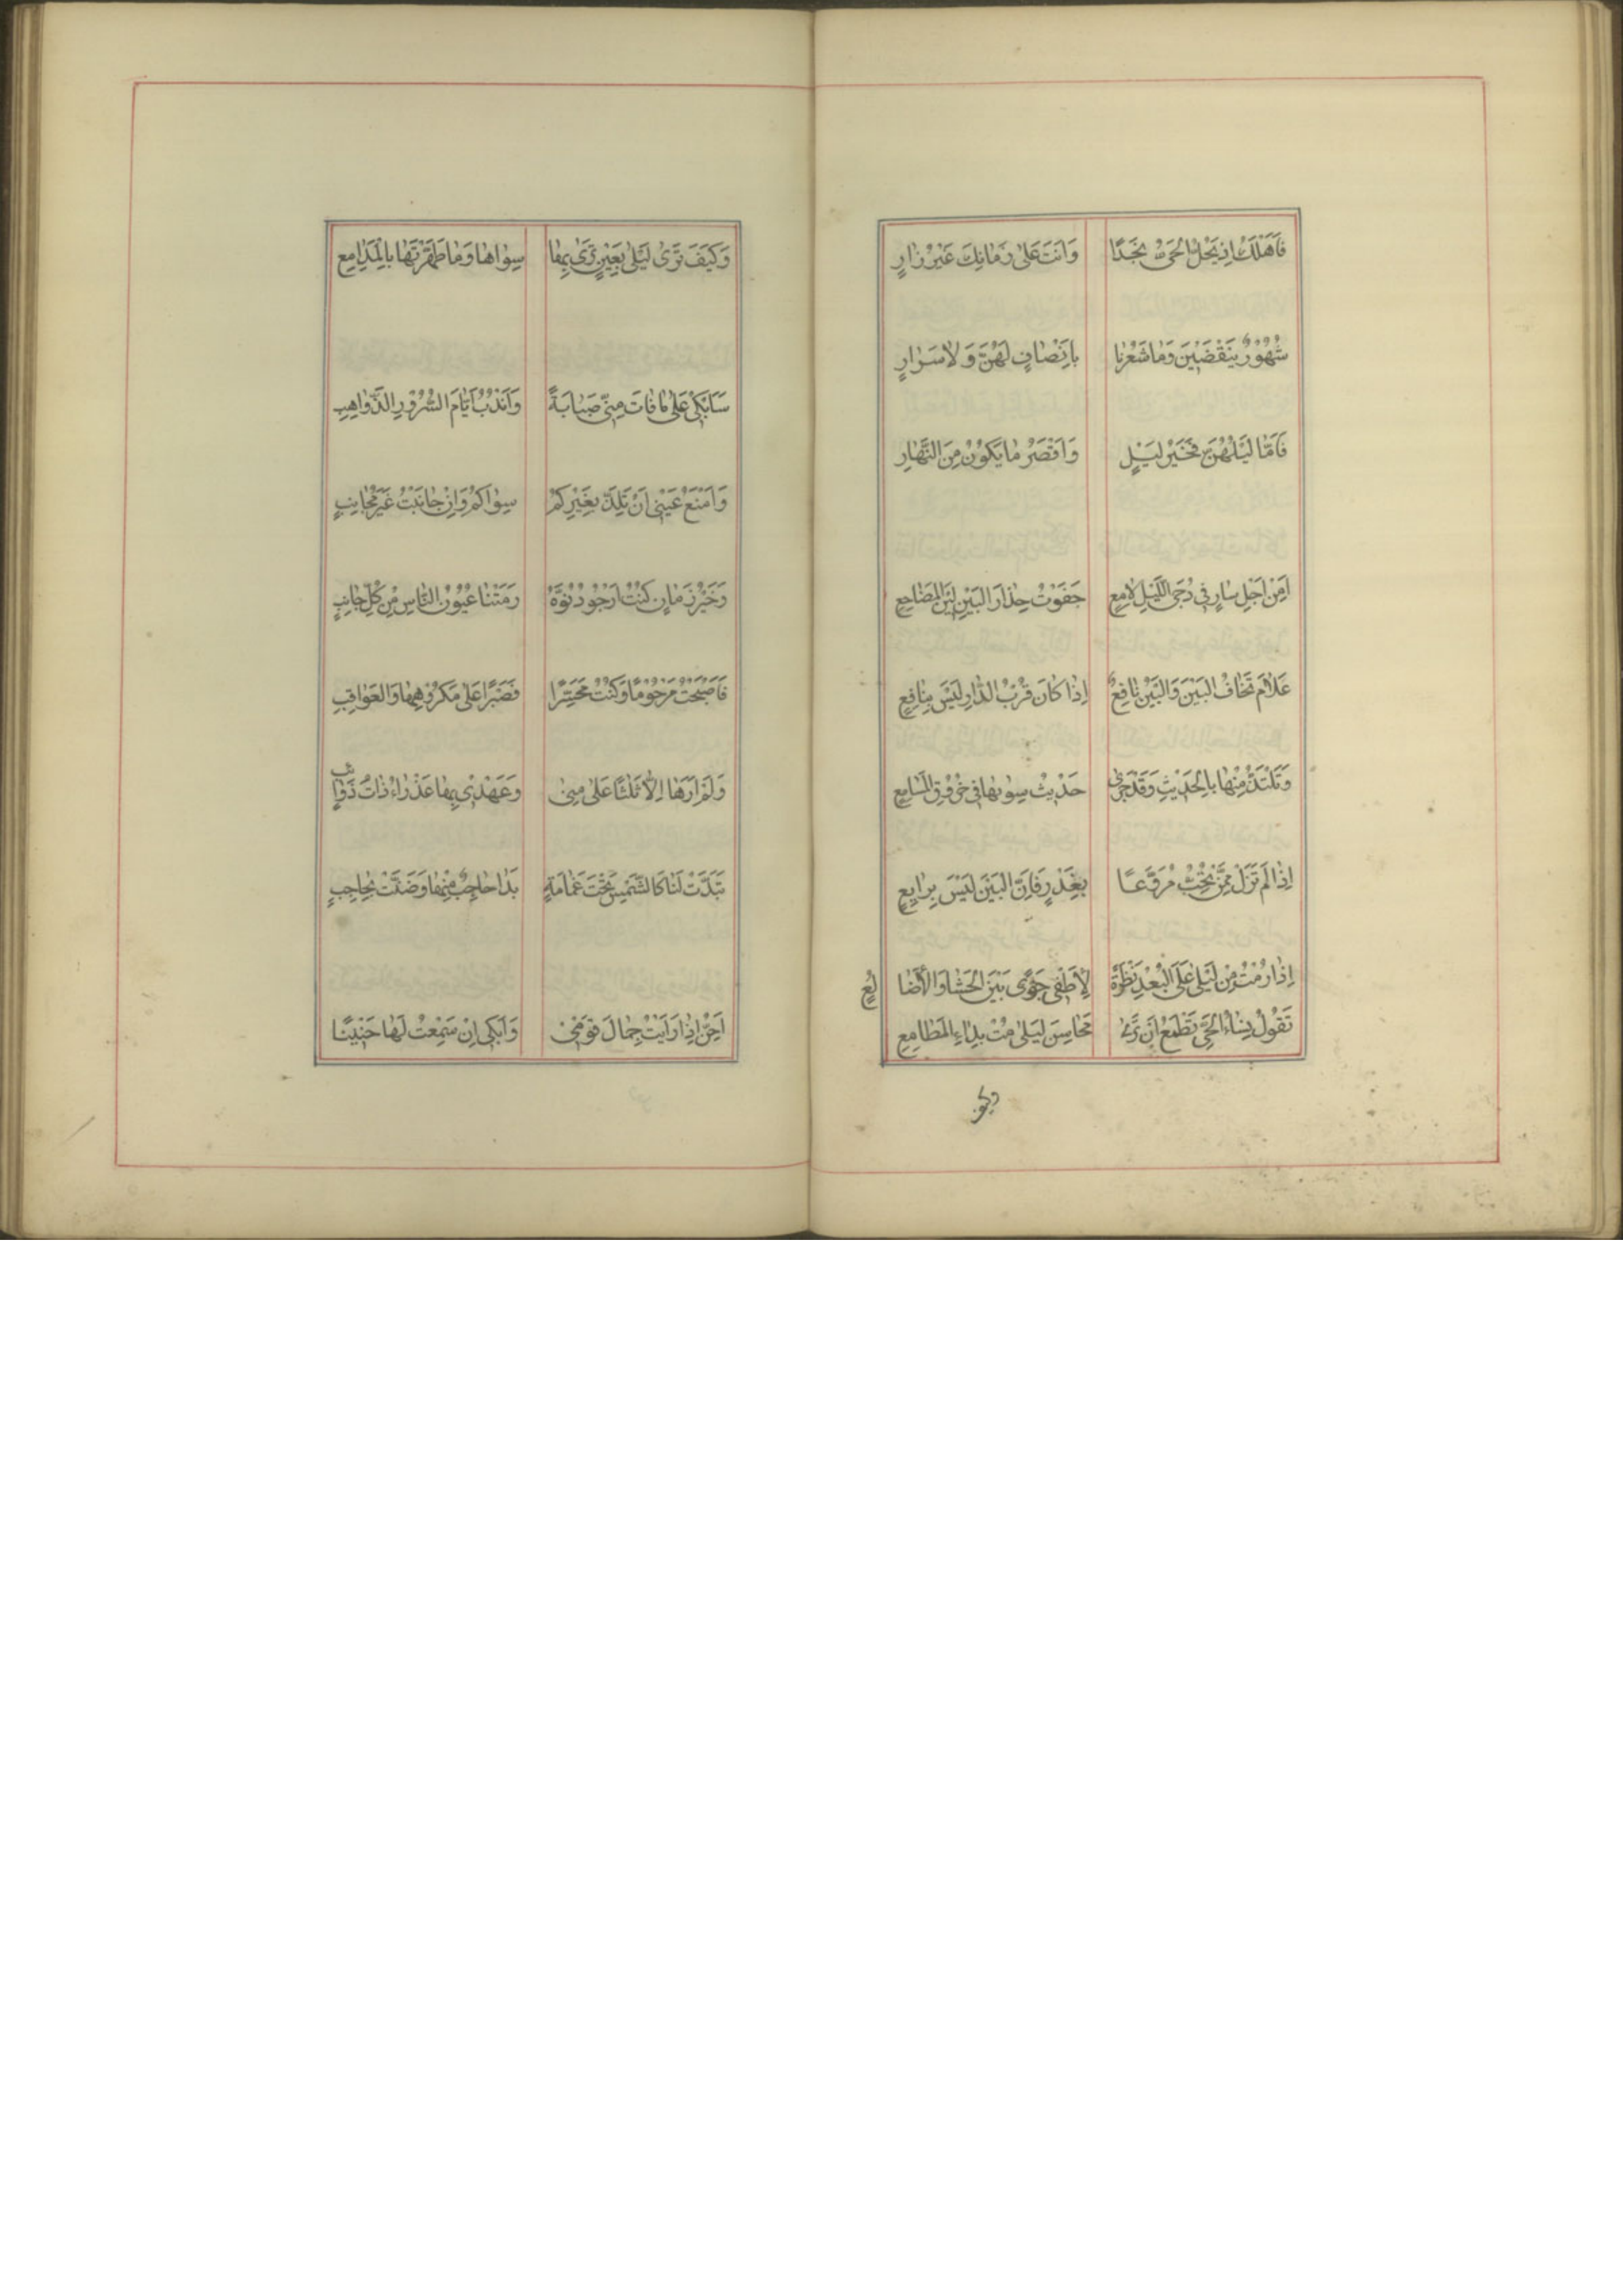 فَاَهْلَكَ اِذْ يَحُلُّ الحَىُّ نَجْدًا وَاَنْتَ عَلٰى زَمَانِكَ غَيْرُ زَارٍ
شُهُوْرٌ يَنْقَضَيْنَ وَمَا شَعُرْنَا بِاَنْصَافٍ لَهُنَّ وَلَا سَرَارٍ
فَاَمَّا لَيْلُهُنَّ فَخَيْرُ لَيْلٍ وَاَقْصَرُ مَا يَكُوْنُ مِنَ النَّهَارِ
اَمِنْ اَجْلِ سَارٍ فِى دُجَى اللَّيْلِ لَامِعٍ جَفَوْتَ حِذَارَ البَيْنِ لَيِّنَ المَضَاجِعِ
عَلَامَ تَخَافُ البَيْنَ وَالبَيْنُ نَافِعٌ اِذَا كَانَ قُرْبُ الدَّارِ لَيْسَ بِنَافِعٍ
وَتَلْتَذُّ مِنْهَا بِالحَدِيْثِ وَقَدْ جَرٰى حَدِيْثُ سِوٰيهَا فِى خُرُوْقِ المَسَامِعِ
اِذَا لَمْ تَزَلْ مِمَّنْ تُحِبُّ مُرَوَّعًا بِغَدْرٍ فَاِنَّ البَيْنَ لَيْسَ بِرَايِعٍ
اِذَا رُمْتُ مِنْ لَيْلٰى عَلَى البُعْدِ نَظْرَةً لِاُطْفِى جَوًى بَيْنَ الحَشَا وَالاَضَالِعِ
تَقُوْلُ نِسَاءُ الحَىِّ تَطْمَعُ اَنْ تَرٰى مَحَاسِنَ لَيْلٰى مُتْ بِدَاءِ المَطَامِعِ
وكيف
وَكَيْفَ تَرٰى لَيْلٰى بِعَيْنٍ تَرٰى بِهَا سِوٰاهَا وَمَا طَهَّرْتَهَا بِالمَدَامِعِ
سَاَبْكِى عَلٰى مَا فَاتَ مِنِّى صَبَابَةً وَاَنْدُبُ اَيَّامَ السُّرُوْرِ الذَّوَاهِبِ
وَاَمْنَعُ عَيْنِى اَنْ تَلَذَّ بِغَيْرِكُمْ سِوٰاكُمْ وَاِنْ جَانَبْتُ غَيْرَ مُجَانِبٍ
وَخَيْرُ زَمَانٍ كُنْتُ اَرْجُوْ دُنُوَّهُ رَمَتْنَا عُيُوْنُ النَّاسِ مِنْ كُلِّ جَانِبٍ
فَاَصْبَحْتُ مَرْحُوْمًا وَكُنْتُ مُحَسَّدًا فَصَبْرًا عَلٰى مَكْرُوْهِهَا وَالعَوَاقِبِ
وَلَمْ اَرَهَا اِلَّا ثَلٰثًا عَلٰى مِنٰى وَعَهْدِى بِهَا عَذْرَاءُ ذَاتُ ذَوَائِبٍ
تَبَدَّتْ لَنَا كَالشَّمْسِ تَحْتَ غَمَامَةٍ بَدَا حَاجِبٌ مِنْهَا وَضَنَّتْ بِحَاجِبٍ
اَحِنُّ اِذَا رَاَيْتُ جِمَالَ قَوْمِى وَاَبْكِى اِنْ سَمِعْتُ لَهَا حَنِيْنًا